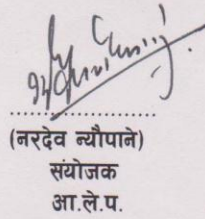 ....................
(नरदेव न्यौपाने)
संयोजक
आ.ले.प.